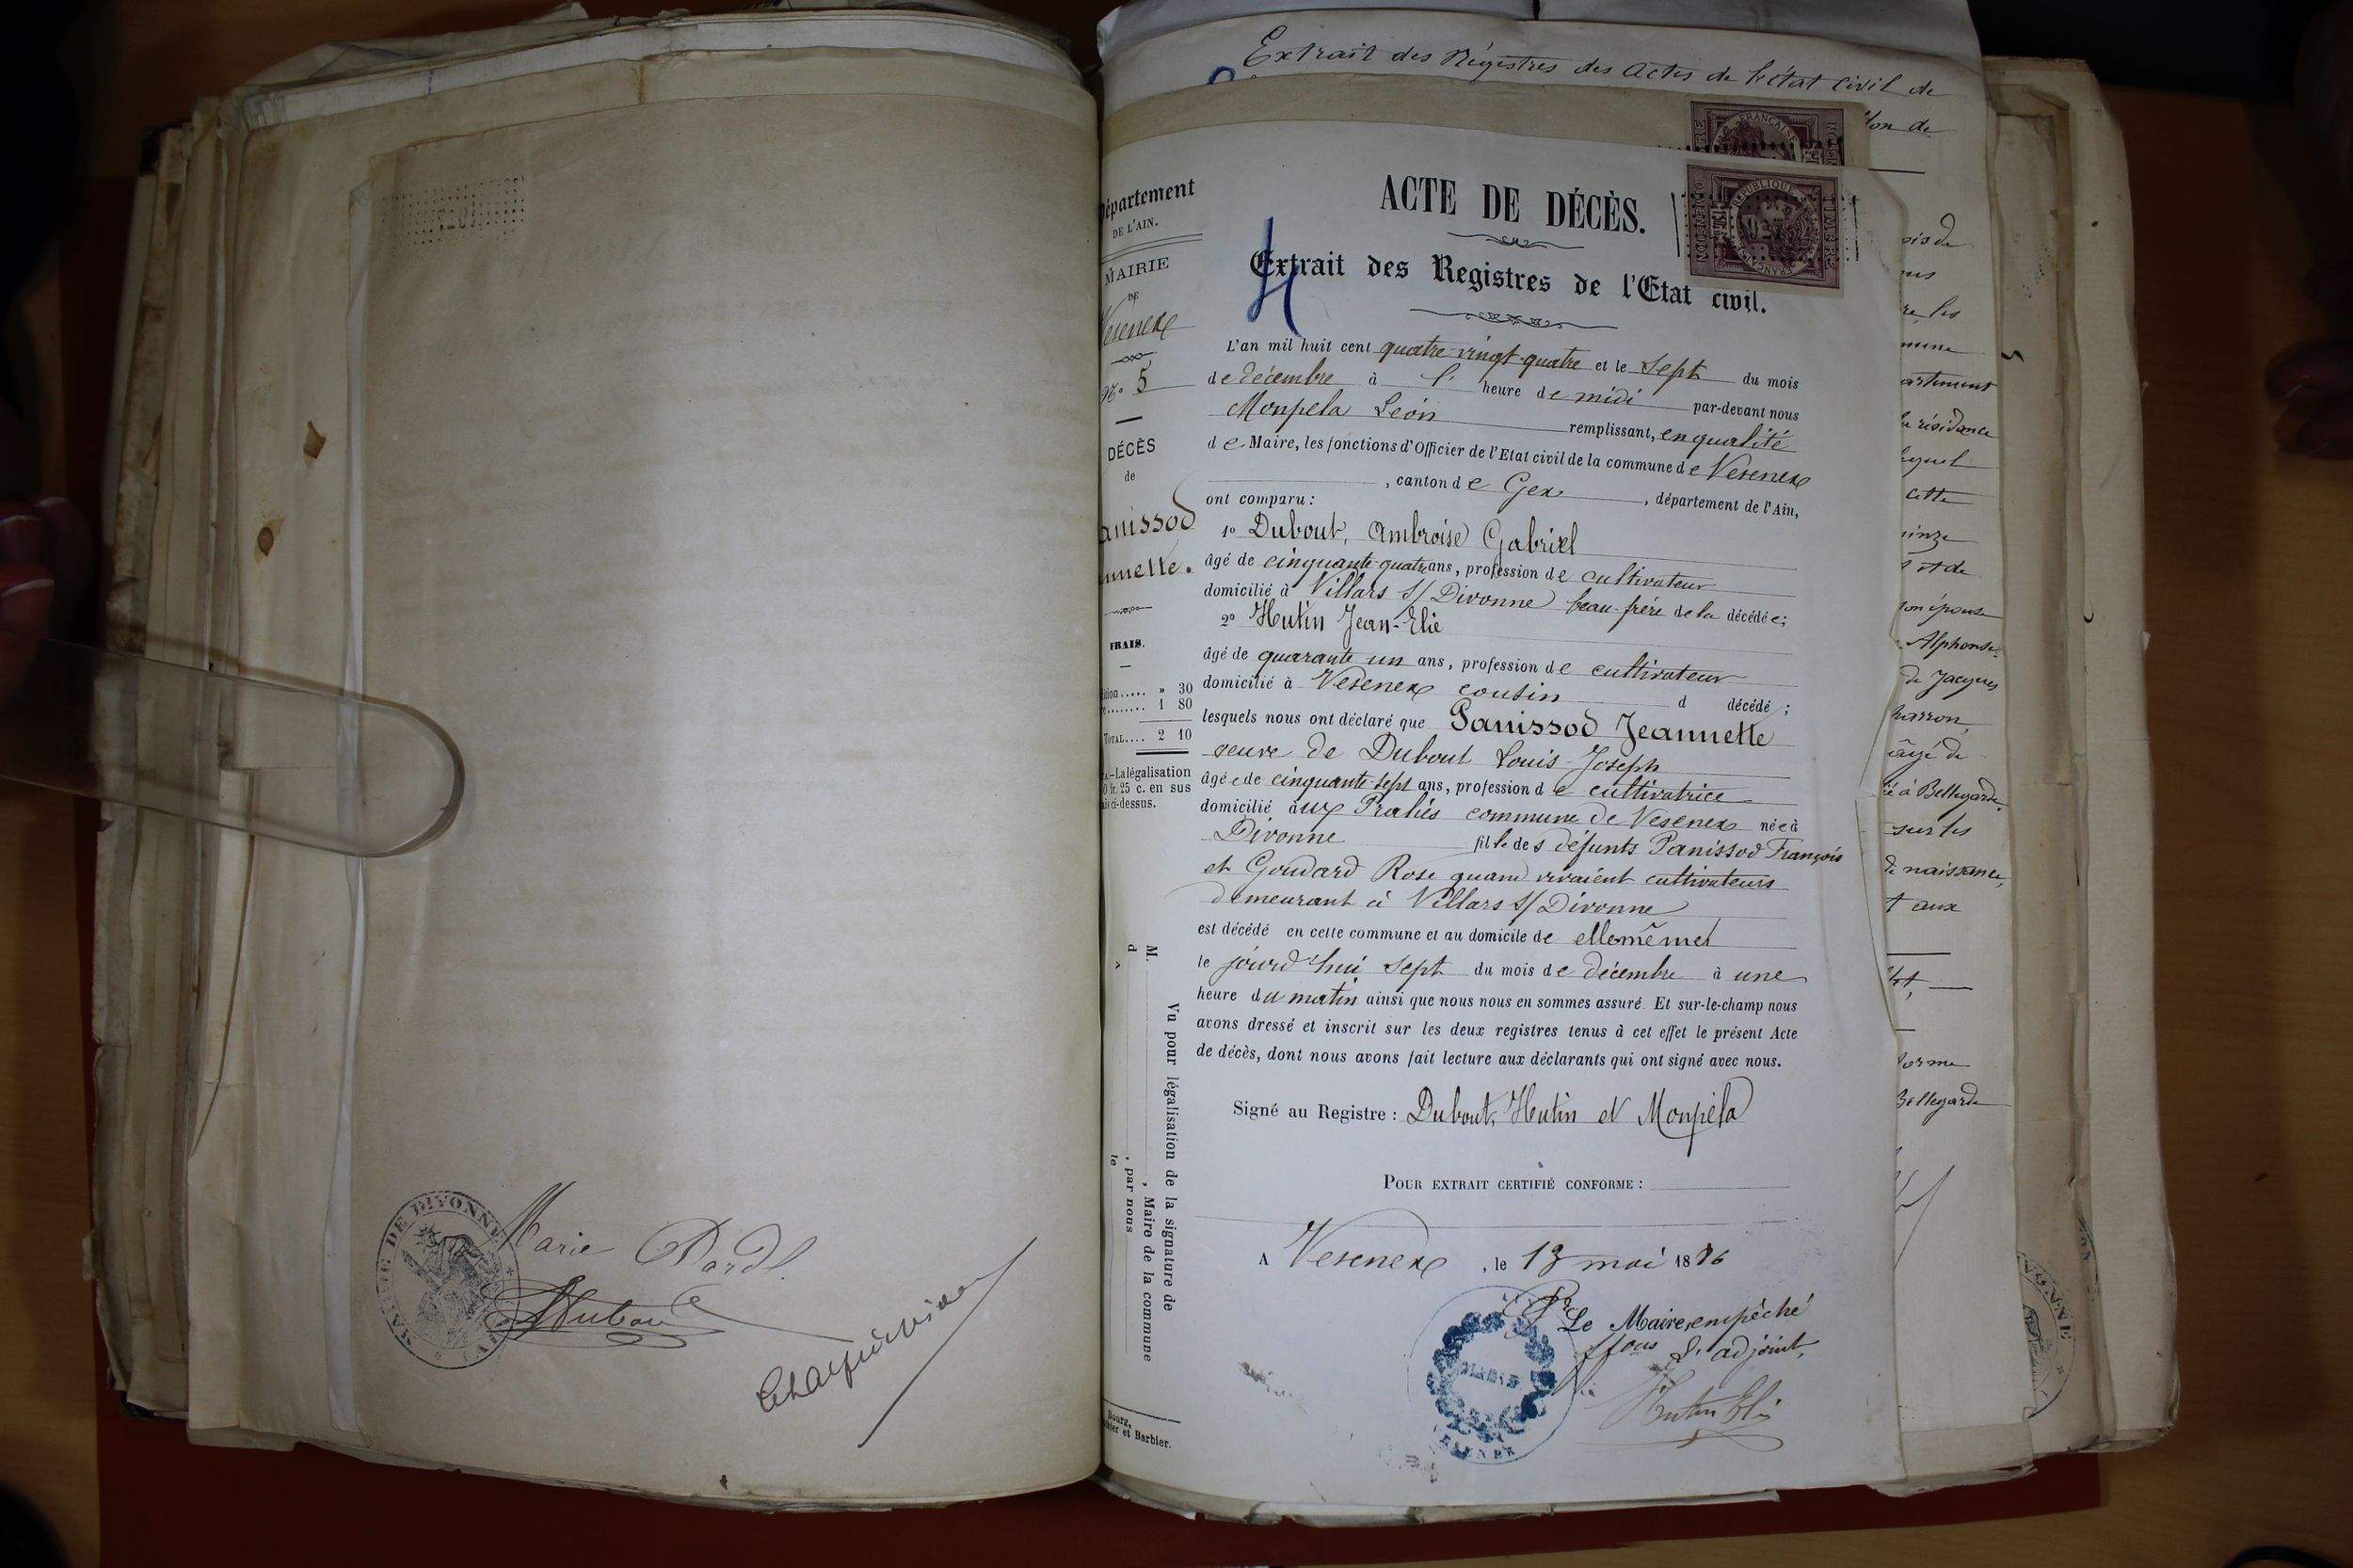 MAIRIE DE DIVONNE
Marie Dardl
Dubout
Extrait des Régistres des Actes de l'état civil de
Département
DE L'AIN.
MAIRIE
DE
Vesenex
No 5
DÉCÈS
de
anissod
nnette.
FRAIS.
ition..... » 30
e........ 1 80
TOTAL.... 2 10
TA.—La légalisation
0 fr. 25 c. en sus
ais ci-dessus.
Vu pour légalisation de la signature de
M. , Maire de la commune
d , par nous
le
Bourg,
et Barbier.
ACTE DE DÉCÈS.
TIMBRE
RÉPUBLIQUE FRANÇAISE
Extrait des Registres de l'Etat civil.
L'an mil huit cent quatre-vingt-quatre et le sept du mois
de décembre à l' heure de midi par-devant nous
Monpela Léon remplissant, en qualité
de Maire, les fonctions d'Officier de l'Etat civil de la commune de Vesenex
, canton de Gex , département de l'Ain,
ont comparu :
1° Dubout, Ambroise Gabriel
âgé de cinquante-quatre ans, profession de cultivateur
domicilié à Villars s/ Divonne beau-frère de la décédée;
2° Hutin Jean-Elie
âgé de quarante un ans, profession de cultivateur
domicilié à Vesenex cousin d décédé ;
lesquels nous ont déclaré que Panissod Jeannette
veuve de Dubout Louis-Joseph
âgée de cinquante-sept ans, profession de cultivatrice
domicilié aux Praliés commune de Vesenex née à
Divonne fille des défunts Panissod François
et Goudard Rose quand vivaient cultivateurs
demeurant à Villars s/ Divonne
est décédé en cette commune et au domicile de elle même
le jourd'hui sept du mois de décembre à une
heure du matin ainsi que nous nous en sommes assuré. Et sur-le-champ nous
avons dressé et inscrit sur les deux registres tenus à cet effet le présent Acte
de décès, dont nous avons fait lecture aux déclarants qui ont signé avec nous.
Signé au Registre : Dubout, Hutin et Monpela
POUR EXTRAIT CERTIFIÉ CONFORME :
A Vesenex , le 13 mai 1886
Pr Le Maire empêché
L'adjoint,
Hutin Elie
MAIRIE
la résidence
cette
son épouse
Alphonse
de Jacques
âgé de
à Bellegarde
sur les
de naissance,
aux
Bellegarde